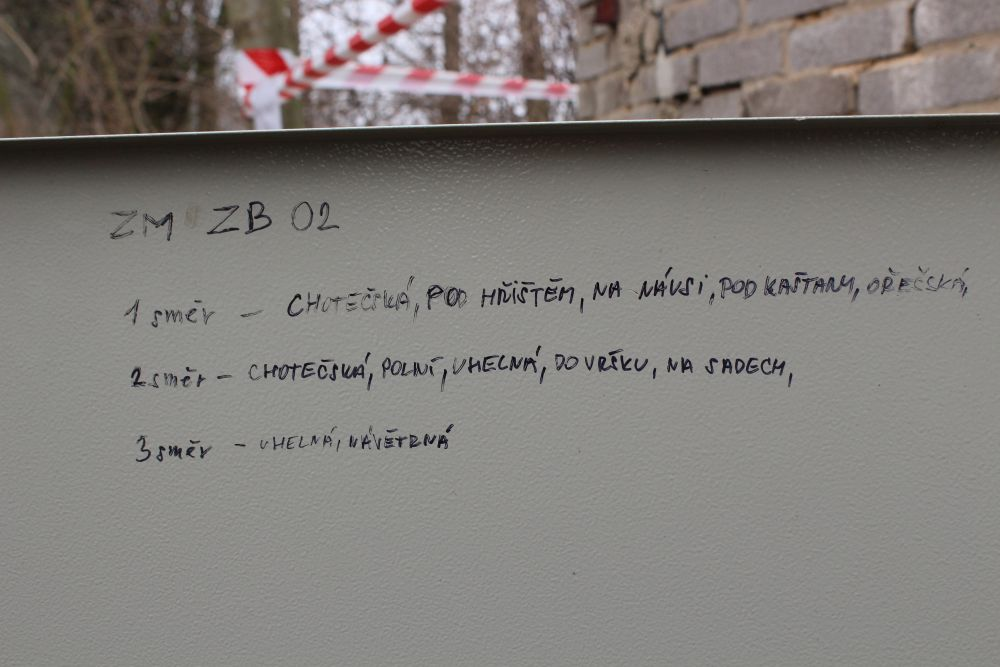 ZM ZB 02
1 směr - CHOTEČSKÁ, POD HŘIŠTĚM, NA NÁVSI, POD KAŠTANY, OŘEČSKÁ,
2 směr - CHOTEČSKÁ, POLNÍ, UHELNÁ, DO VRŠKU, NA SADECH,
3 směr - UHELNÁ, NÁVĚTRNÁ